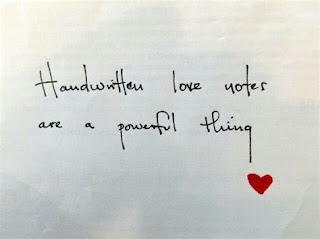 Handwritten love notes
are a powerful thing